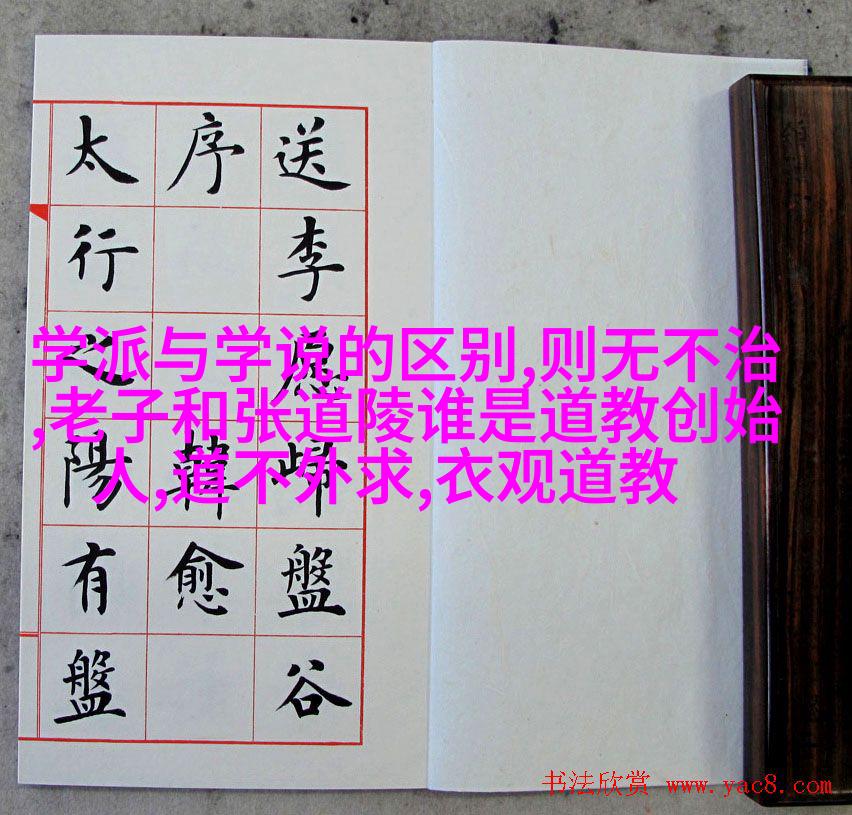 送李愿歸盤谷
序韓愈
太行之陽有盤
学派与学说的区别,则无不治
,老子和张道陵谁是道教创始
人,道不外求,衣观道教
书法欣赏 www.yac8.com